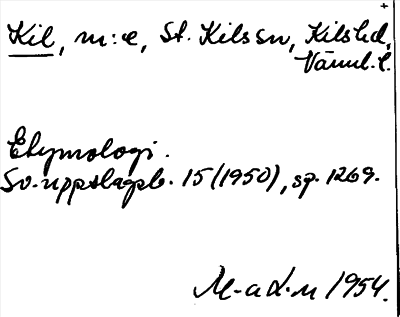 Kil, m:e, St. Kils sn, Kils hd,
Värml. l.
Etymologi.
Sv. uppslagsb. 15 (1950), sp. 1269.
M-a L-n 1954.